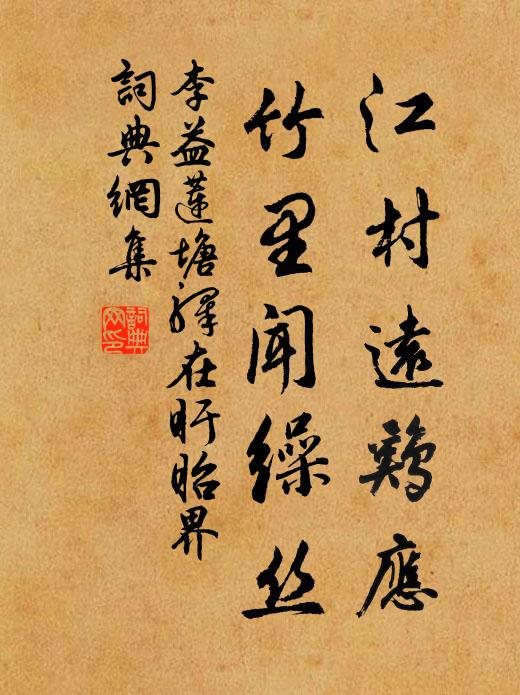 江村遠鷄應
竹里闻繰丝
李益蓮塘驛在盱眙界
詞典網集
詞典網印